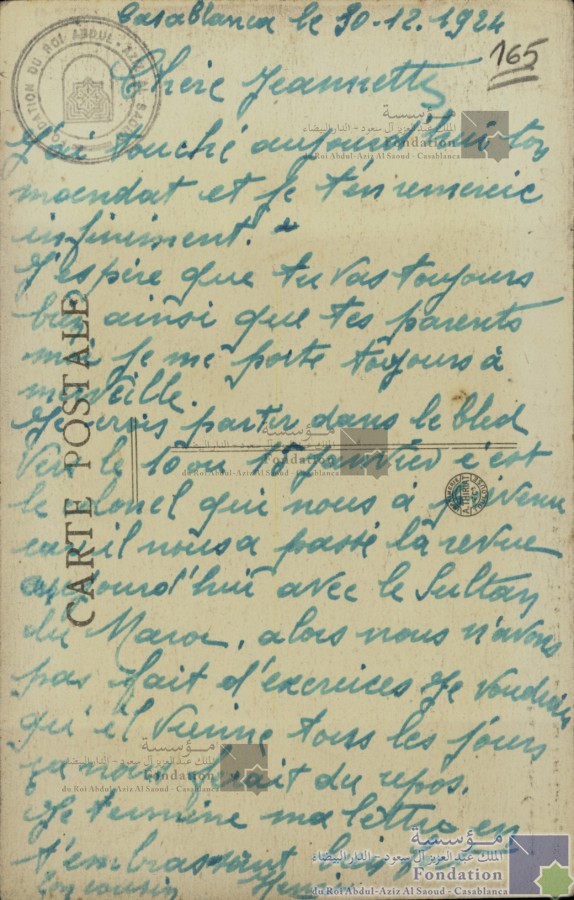 Casablanca le 30-12.1924
165
Chère Jeannette
J'ai touché aujourd'hui ton
mandat et je t'en remercie
infiniment.
J'espère que tu vas toujours
bien ainsi que tes parents
moi je me porte toujours à
merveille.
Je crois partir dans le bled
vers le 10 ou 15 janvier c'est
le colonel qui nous à prévenu
car il nous a passé la revue
aujourd'hui avec le Sultan
du Maroc, alors nous n'avons
pas fait d'exercices je voudrais
qu'il vienne tous les jours
ça nous ferait du repos.
Je termine ma lettre en
t'embrassant bien fort
ton cousin Henri
CARTE POSTALE
FONDATION DU ROI ABDUL-AZIZ AL SAOUD
مؤسسة
الملك عبدالعزيز آل سعود - الدار البيضاء
Fondation
du Roi Abdul-Aziz Al Saoud - Casablanca
مؤسسة
الملك عبدالعزيز آل سعود - الدار البيضاء
Fondation
du Roi Abdul-Aziz Al Saoud - Casablanca
مؤسسة
الملك عبدالعزيز آل سعود - الدار البيضاء
Fondation
du Roi Abdul-Aziz Al Saoud - Casablanca
مؤسسة
الملك عبدالعزيز آل سعود - الدار البيضاء
Fondation
du Roi Abdul-Aziz Al Saoud - Casablanca